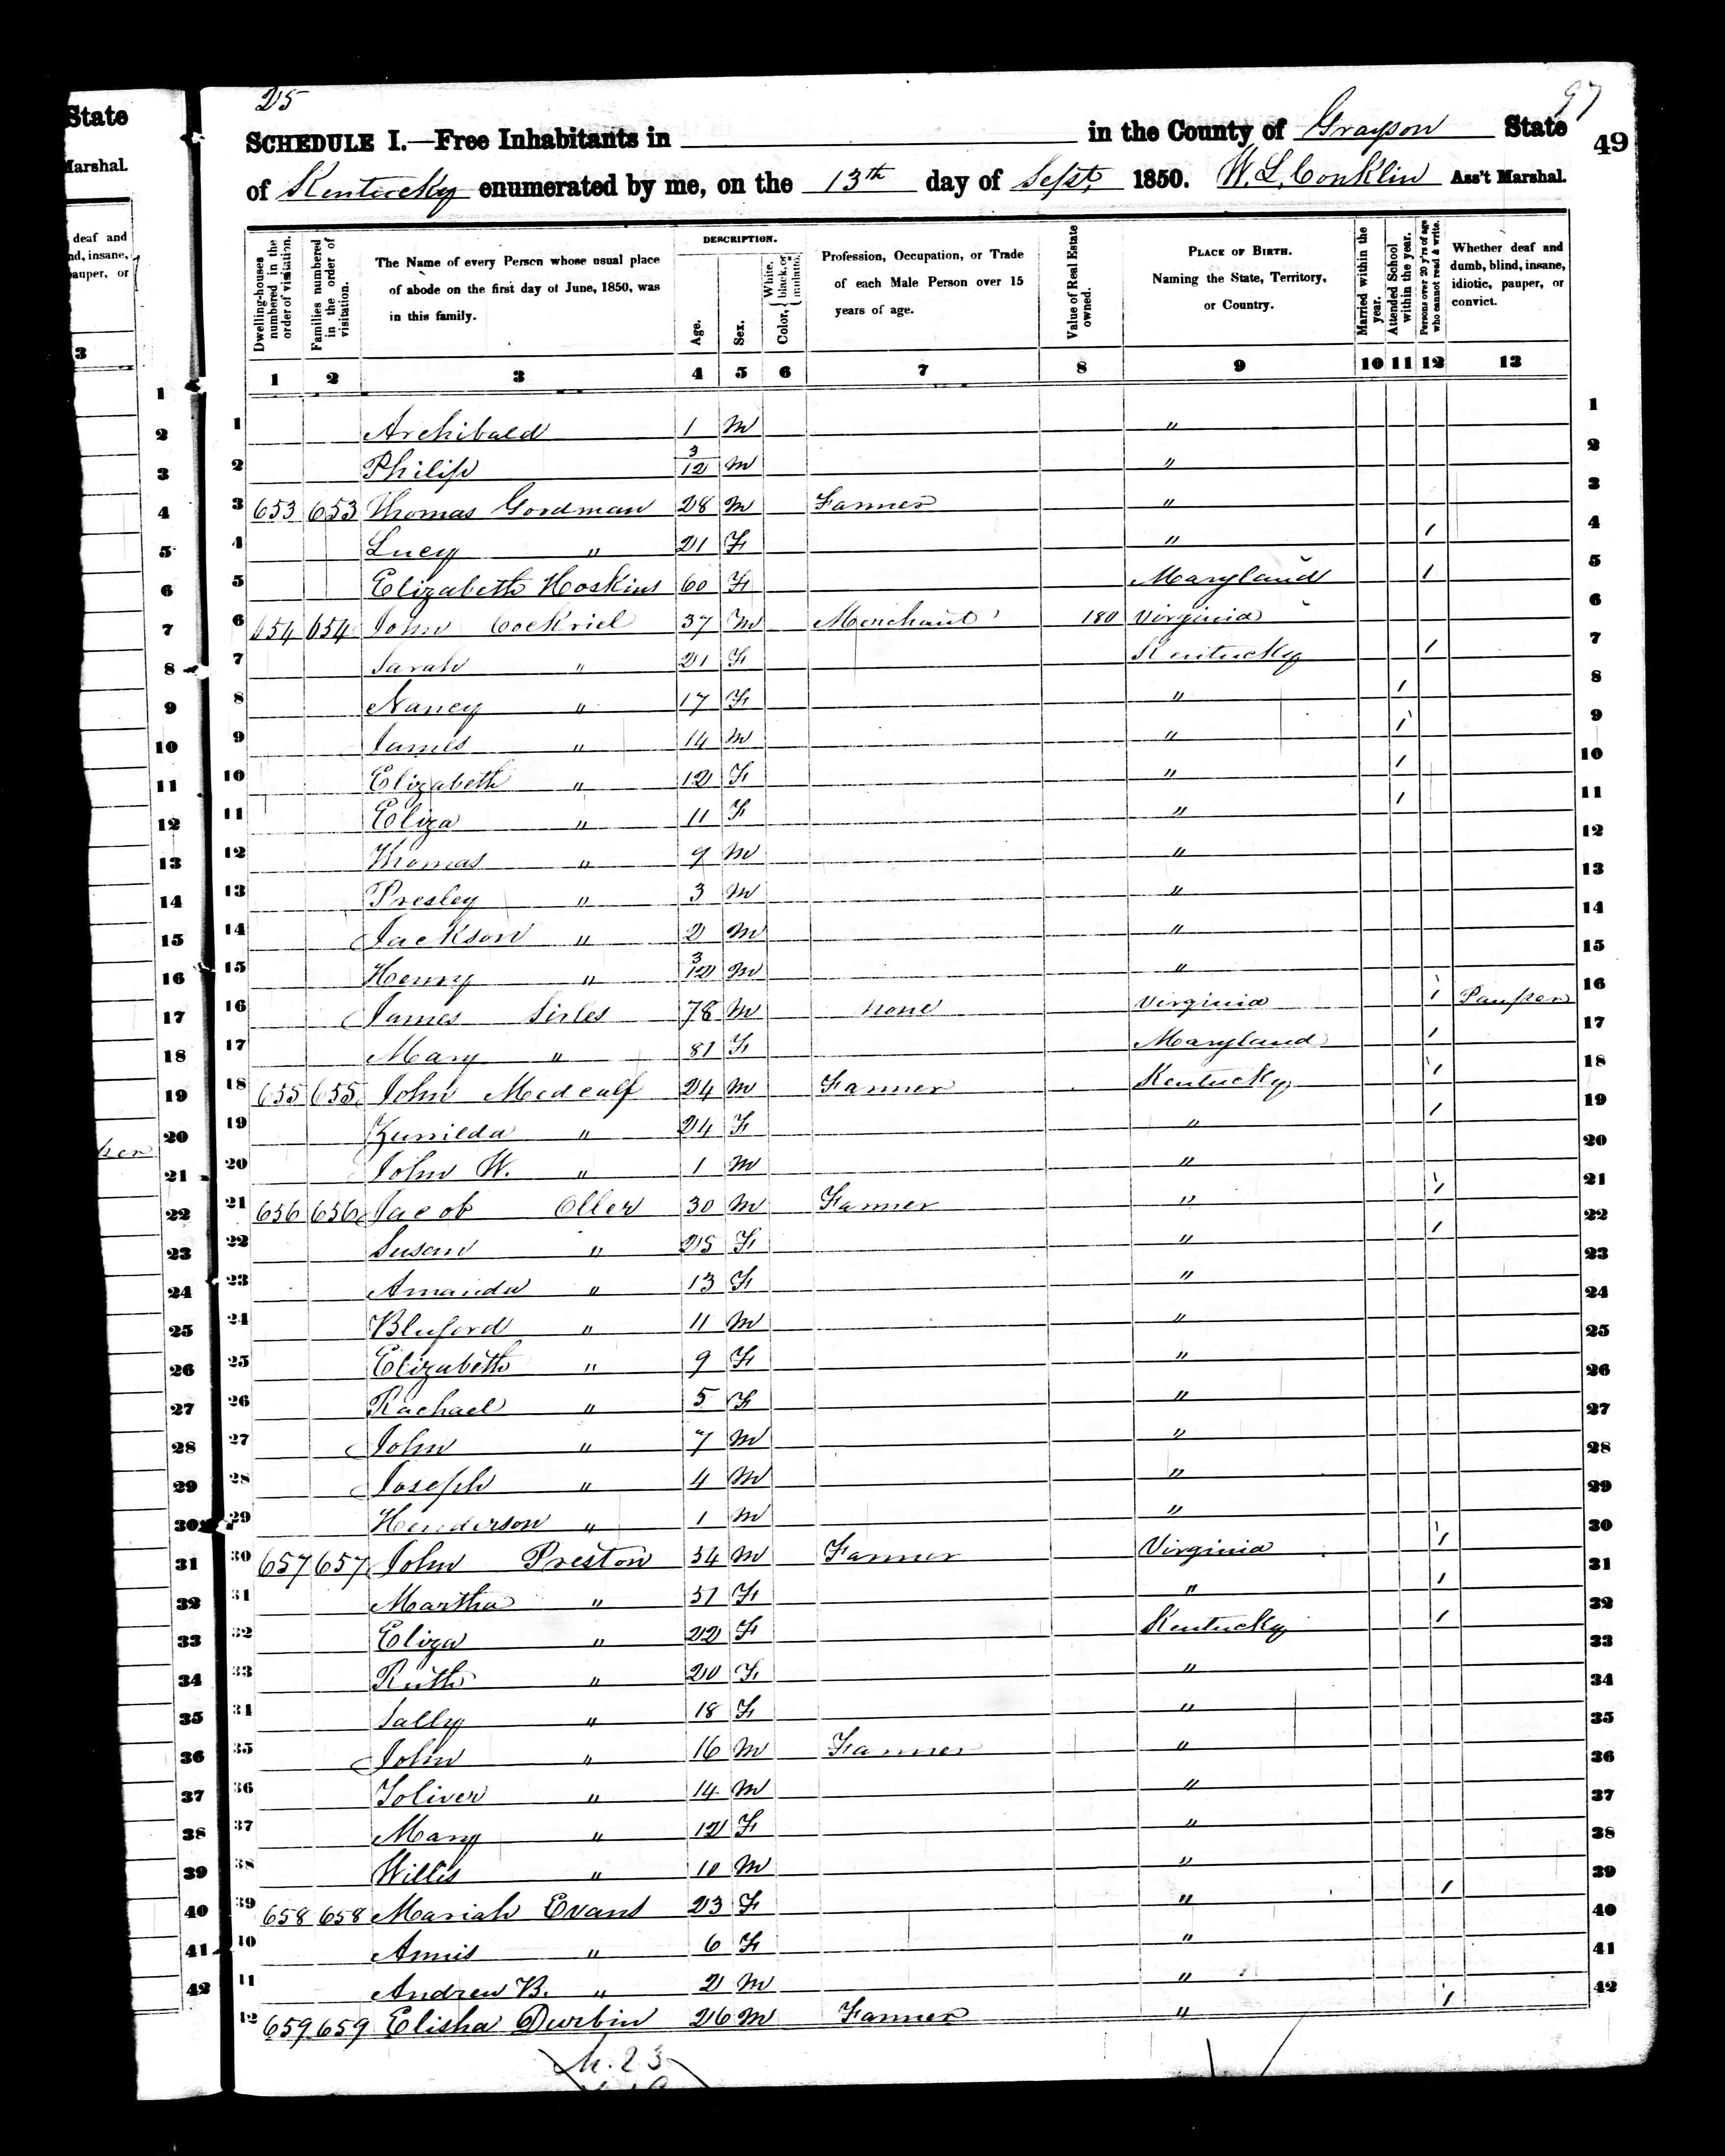 State
Marshal.
deaf and
nd, insane,
pauper, or
3
25
97
49
SCHEDULE I.—Free Inhabitants in in the County of Grayson State
of Kentucky enumerated by me, on the 13th day of Sept. 1850. W. L. Conklin Ass't Marshal.
Dwelling-houses numbered in the order of visitation.
Families numbered in the order of visitation.
The Name of every Person whose usual place of abode on the first day of June, 1850, was in this family.
DESCRIPTION.
Age.
Sex.
Color, { White, black, or mulatto.
Profession, Occupation, or Trade of each Male Person over 15 years of age.
Value of Real Estate owned.
PLACE OF BIRTH. Naming the State, Territory, or Country.
Married within the year.
Attended School within the year.
Persons over 20 y'rs of age who cannot read & write.
Whether deaf and dumb, blind, insane, idiotic, pauper, or convict.
1 2 3 4 5 6 7 8 9 10 11 12 13
1 Archibald 1 M " 1
2 Philip 3/12 M " 2
3 653 653 Thomas Goodman 28 M Farmer " 3
4 Lucy " 21 F " 1 4
5 Elizabeth Hoskins 60 F Maryland 1 5
6 654 654 John Cockriel 37 M Merchant 180 Virginia 6
7 Sarah " 21 F Kentucky 1 7
8 Nancy " 17 F " 1 8
9 James " 14 M " 1 9
10 Elizabeth " 12 F " 1 10
11 Eliza " 11 F " 1 11
12 Thomas " 9 M " 12
13 Presley " 3 M " 13
14 Jackson " 2 M " 14
15 Henry " 3/12 M " 15
16 James Sirles 78 M none Virginia 1 Pauper 16
17 Mary " 81 F Maryland 1 17
18 655 655 John Medcalf 24 M Farmer Kentucky 1 18
19 Zurilda " 24 F " 1 19
20 John W. " 1 M " 20
21 656 656 Jacob Oller 30 M Farmer " 1 21
22 Susan " 25 F " 1 22
23 Amanda " 13 F " 23
24 Bluford " 11 M " 24
25 Elizabeth " 9 F " 25
26 Rachael " 5 F " 26
27 John " 7 M " 27
28 Joseph " 4 M " 28
29 Henderson " 1 M " 29
30 657 657 John Preston 54 M Farmer Virginia 1 30
31 Martha " 51 F " 1 31
32 Eliza " 22 F Kentucky 1 32
33 Ruth " 20 F " 33
34 Sally " 18 F " 34
35 John " 16 M Farmer " 35
36 Toliver " 14 M " 36
37 Mary " 12 F " 37
38 Willis " 10 M " 38
39 658 658 Mariah Evans 23 F " 1 39
40 Annis " 6 F " 40
41 Andrew B. " 2 M " 41
42 659 659 Elisha Durbin 26 M Farmer " 1 42
M. 23